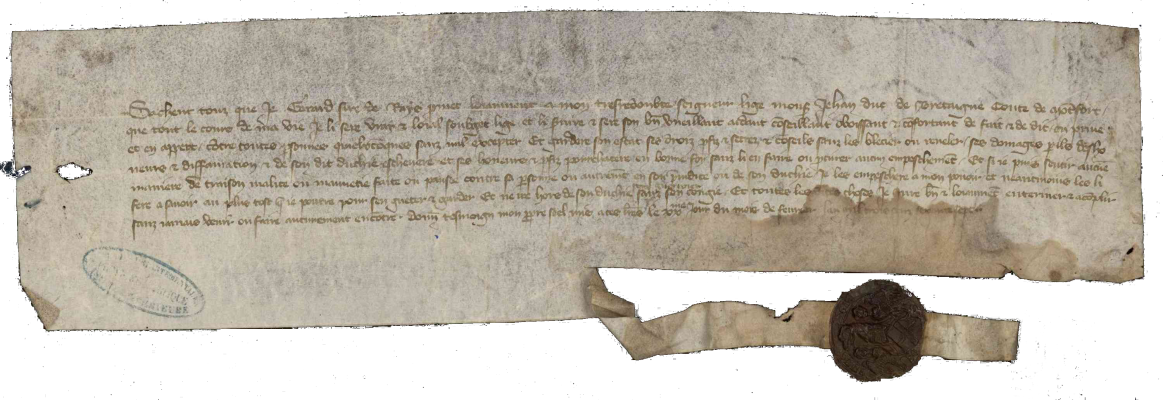 Sachent touz que Je Girard sire de Rays promet loiaument a mon tresredoubte seigneur lige mons Jehan duc de Bretaigne Conte de Montfort
que tout le cours de ma vie Je li seré vray & loial soubget lige et li servire & seré son bn vueillant aidant conseillant obeissant & confortant de fait & de dit en prive
et en appert contre toutes personnes quielxconques sanz nul excepter Et garderé son estat ses droiz & secrez & conseils sanz les bleciez ou reveler ses domages perilz deshon
neurs & diffamacion & de son dit duchie eschevere et ses honeurs & pourchacere en bonne foy sanz le faire ou porter aucun empeschement Et si je puis savoir aucune
maniere de traison malice ou mauvestie faite ou pansee contre sa personne ou autrement en son preiudice ou de son duchie Je les empeschere a mon povoir et neantmoins les li
fere a savoir au plus tost que je pourre pour sen gueter & garder Et ne ire hors de son duchie sanz son congie Et toutes les choses Je jure bn & loiaument enteriner & acomplir
sanz jamais venir ou faire aucunement encontre Donn tesmoign mon propre seel mis a ces lres le jour du mois de fevrier lan mil